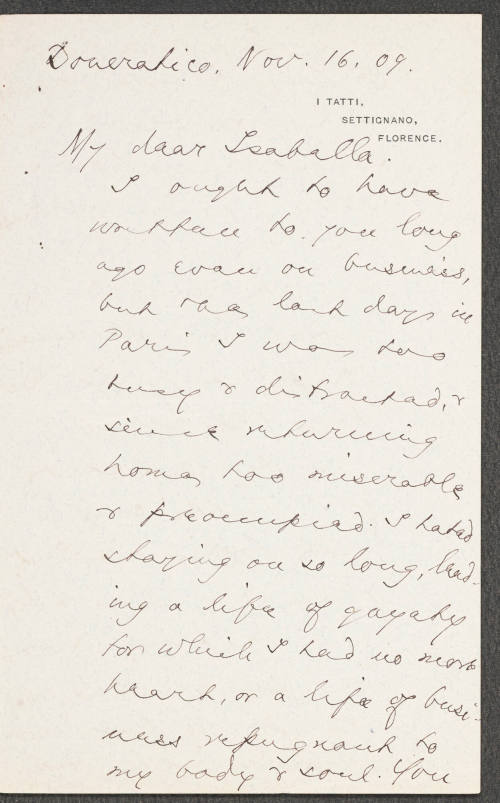 Doneratico, Nov. 16. 09.
I TATTI,
SETTIGNANO,
FLORENCE.
My dear Isabella.
I ought to have
written to you long
ago even on business,
but the last days in
Paris I was too
busy & distracted, &
since returning
home, too miserable
& preoccupied. I hated
staying on so long, lead-
ing a life of gayety
for which I had no more
heart, or a life of busi-
ness repugnant to
my body & soul. You